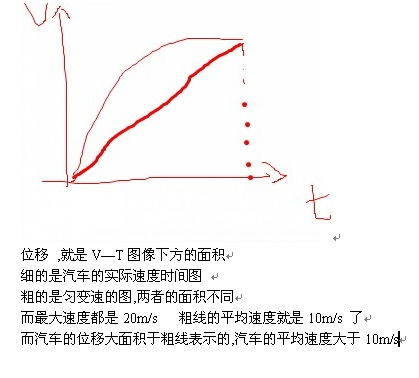 V
t
位移 ,就是 V—T 图像下方的面积
细的是汽车的实际速度时间图
粗的是匀变速的图,两者的面积不同
而最大速度都是 20m/s 粗线的平均速度就是 10m/s 了
而汽车的位移大面积于粗线表示的,汽车的平均速度大于 10m/s